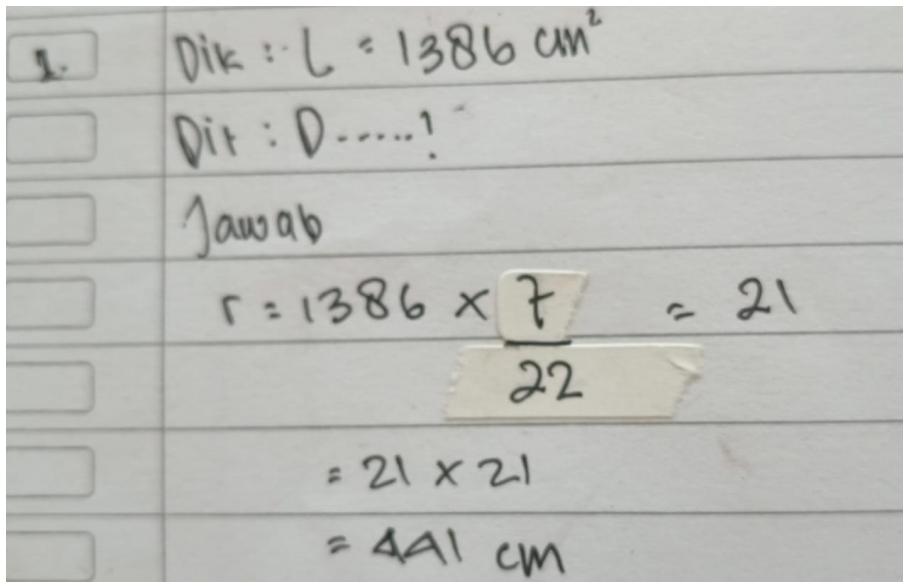 1. Dik : L = 1386 cm²
Dit : D ......!
Jawab
r = 1386 × 7/22 = 21
= 21 × 21
= 441 cm